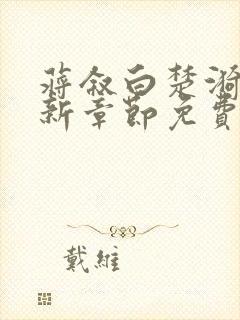 蔣敘白楚漪
新章節免費
戴維